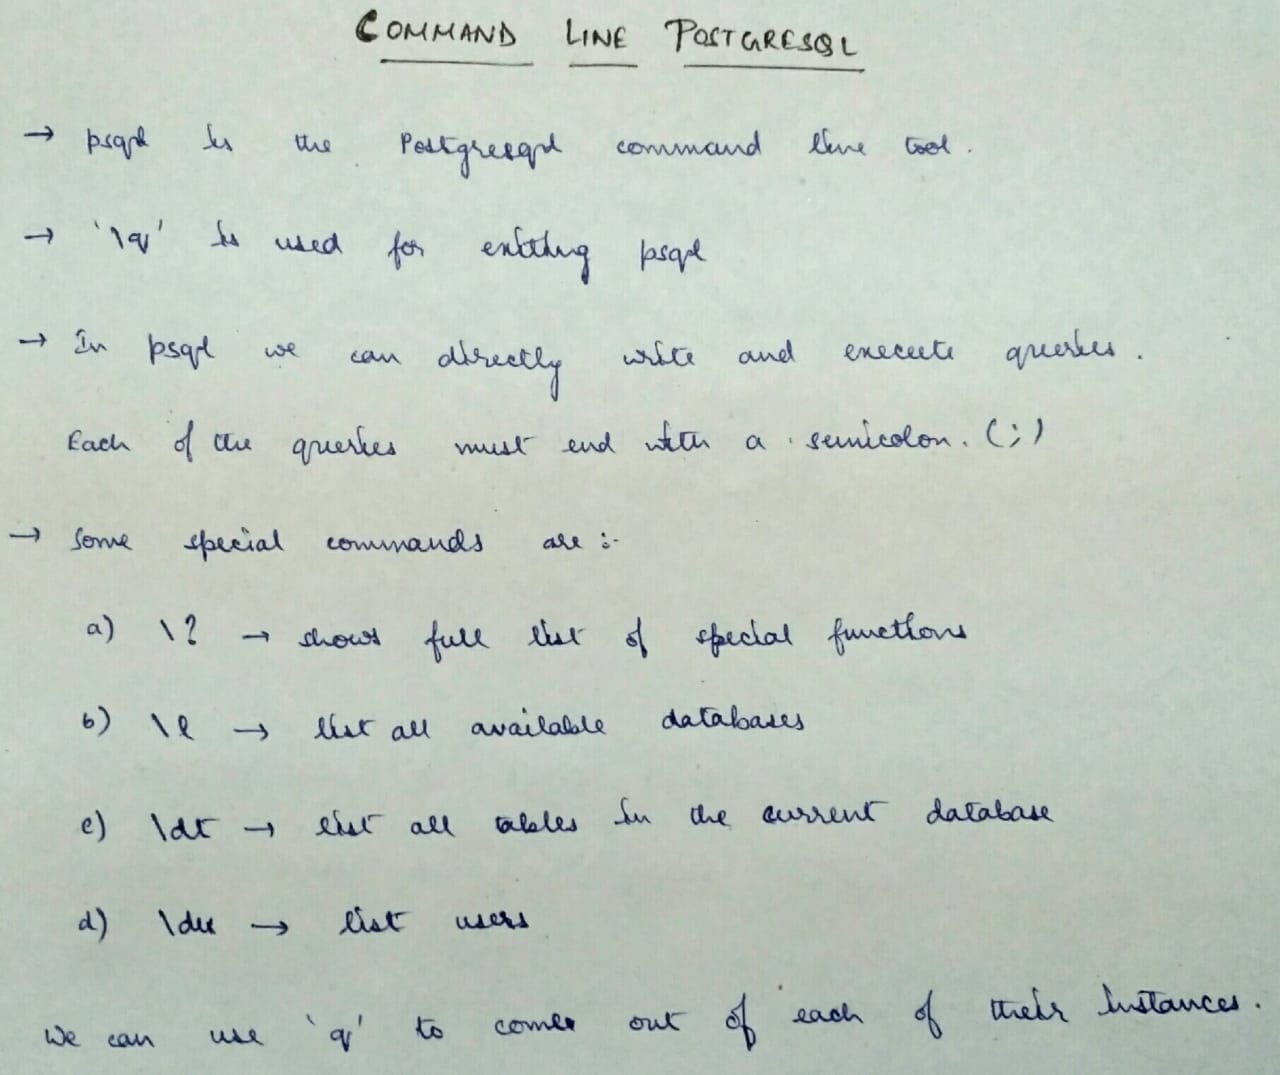 COMMAND LINE POSTGRESQL
→ psql is the Postgresql command line tool.
→ '\q' is used for exiting psql
→ In psql we can directly write and execute queries.
Each of the queries must end with a semicolon. (;)
→ Some special commands are :-
a) \? → shows full list of special functions
b) \l → list all available databases
c) \dt → list all tables in the current database
d) \du → list users
We can use 'q' to come out of each of their instances.